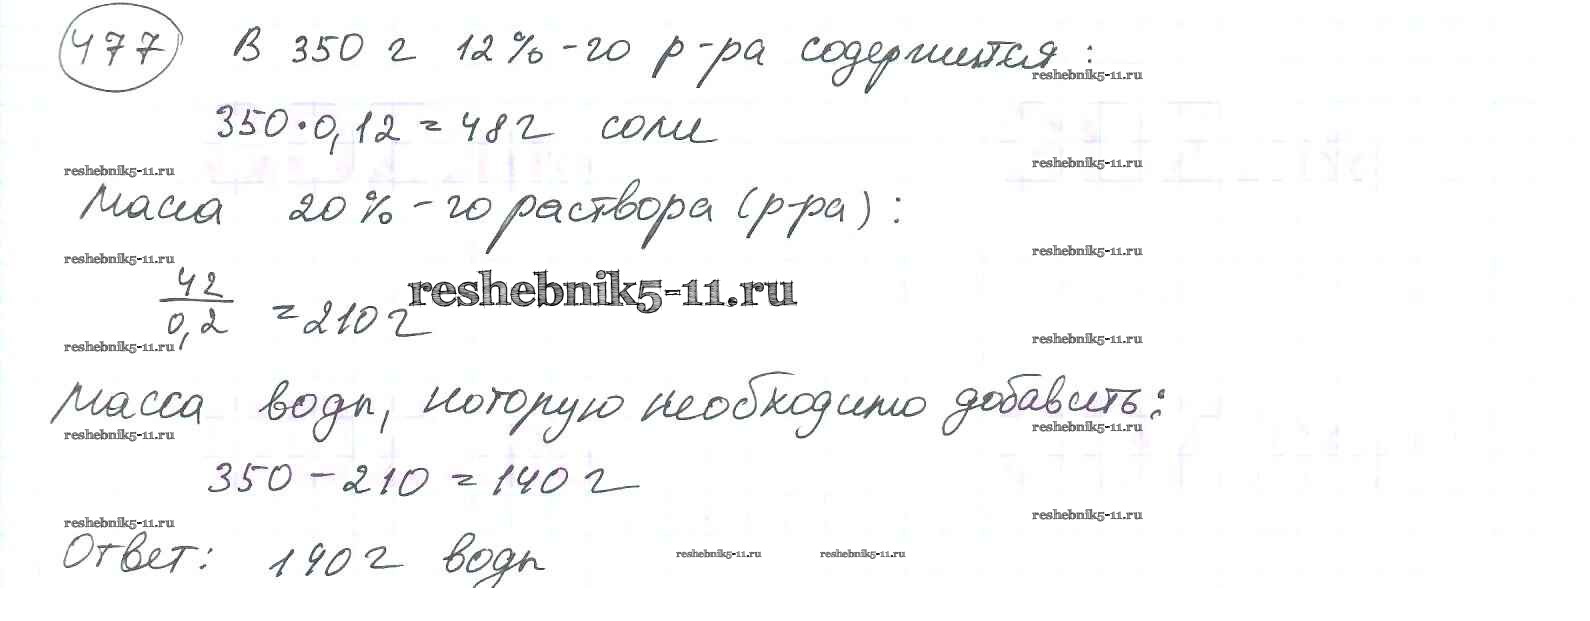 477 В 350 г 12%-го р-ра содержится:
reshebnik5-11.ru
350·0,12=48г соли
reshebnik5-11.ru reshebnik5-11.ru
Масса 20%-го раствора (р-ра):
reshebnik5-11.ru reshebnik5-11.ru
42/0,2 =210г reshebnik5-11.ru
reshebnik5-11.ru reshebnik5-11.ru
Масса воды, которую необходимо добавить:
reshebnik5-11.ru reshebnik5-11.ru
350-210=140г
reshebnik5-11.ru reshebnik5-11.ru
Ответ: 140г воды reshebnik5-11.ru reshebnik5-11.ru